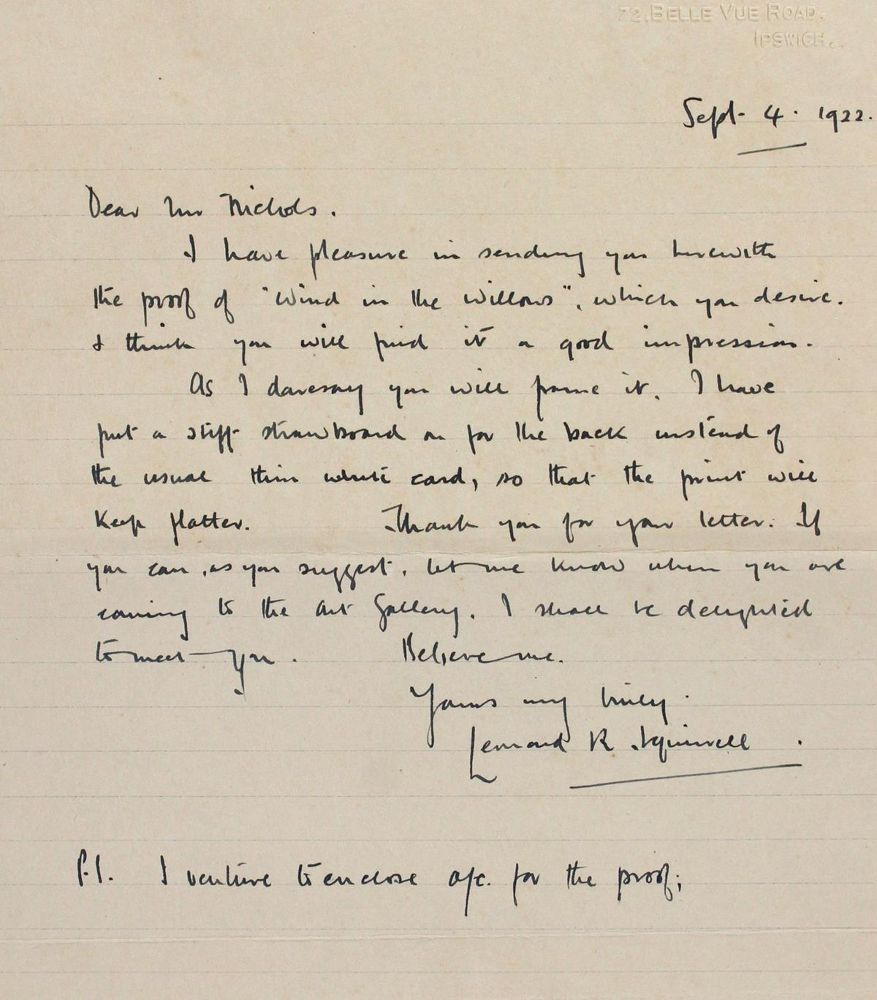 72, BELLE VUE ROAD,
IPSWICH.
Sept. 4. 1922.
Dear Mr Nichols.
I have pleasure in sending you herewith
the proof of "Wind in the Willows", which you desire.
I think you will find it a good impression.
As I daresay you will frame it, I have
put a stiff strawboard on for the back instead of
the usual thin white card, so that the print will
keep flatter. Thank you for your letter. If
you can, as you suggest, let me know when you are
coming to the Art Gallery, I shall be delighted
to meet you. Believe me.
Yours very truly.
Leonard R. Squirrell.
P.S. I venture to enclose a/c. for the proof;